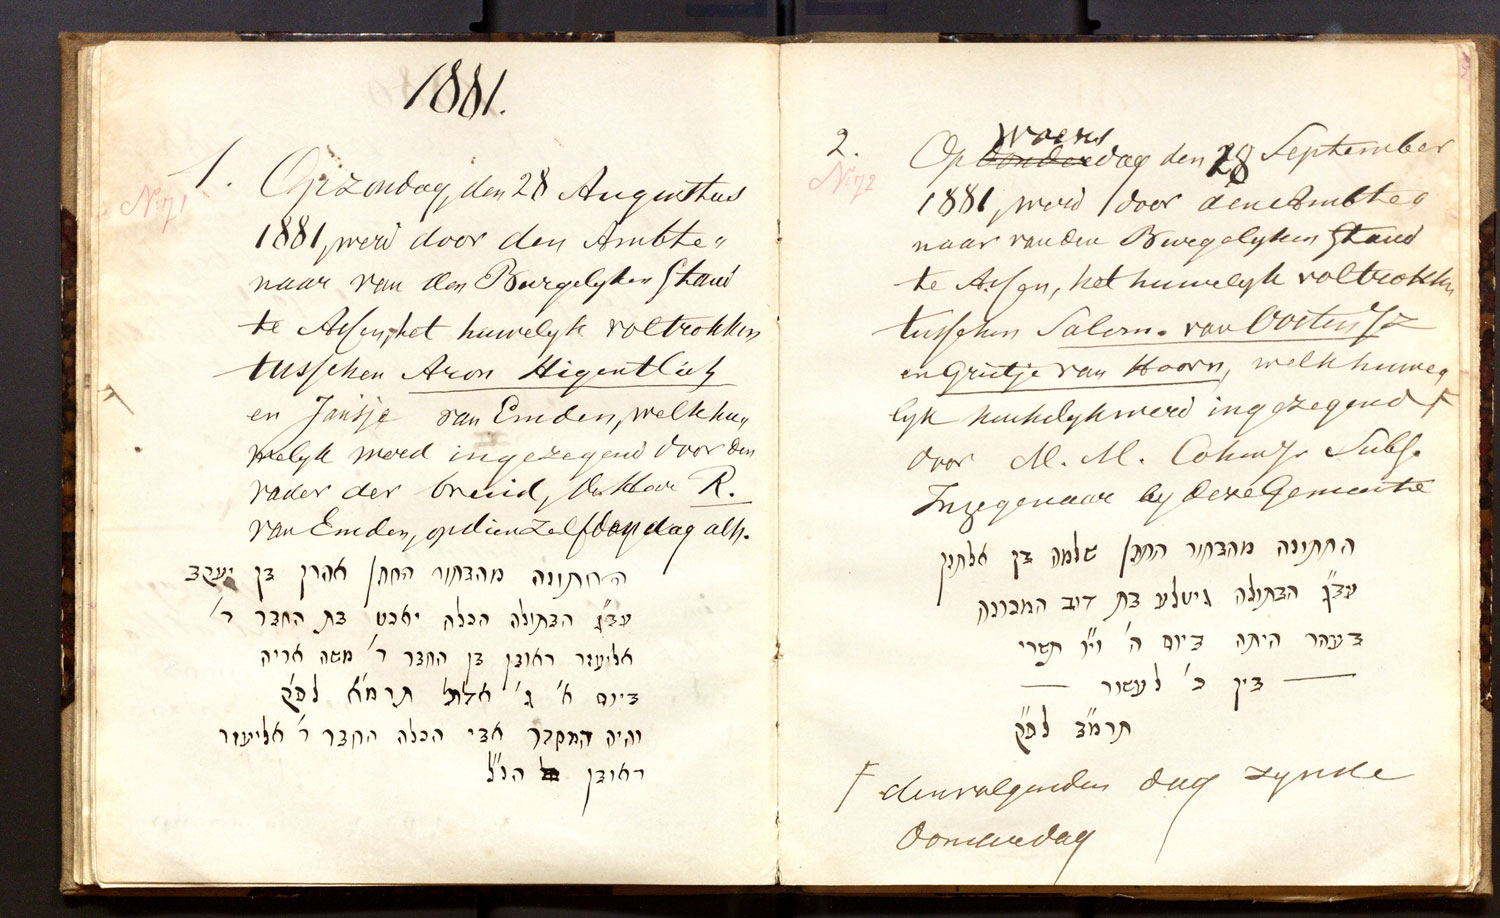 1881.
1.
No 71
Op zondag, den 28 Augustus
1881, werd door den Ambte„
naar van den Burgelyken Stand
te Assen, het huwelyk voltrokken
tusschen Aron Higentlich
en Jansje van Emden, welk hu„
welyk werd ingezegend door den
vader der bruid, den Heer R.
van Emden, op dienzelfden dag alh.
החתונה מהבתור החתן אהרן בן יעקב
עב״ג הבתולה הכלה יאכט בת החבר ר׳
אליעזר ראובן בן החבר ר׳ משה אריה
ביום א׳ ג׳ אלול תרמ״א לפ״ק
והיה המקדר אבי הכלה החבר ר׳ אליעזר
ראובן הנ״ל
2.
No 72
Woens
Op donderdag den 28 September
1881, werd door den Ambte„
naar van den Burgelyken Stand
te Assen, het huwelyk voltrokken
tusschen Salom. van Oosten Jz
en Grietje van Hoorn, welk huwe„
lyk kerkelyk werd ingezegend F
door M. M. Cohen Jr Subs.
Inzegenaar by deze Gemeente
החתונה מהבתור החתן שלמה בן אלחנן
עב״ג הבתולה גיטלע בת דוב המכונה
בעהר היתה ביום ה׳ וי״ו תשרי
— בין כ׳ לעשור —
תרמ״ב לפ״ק
F den volgenden dag zynde
Donderdag